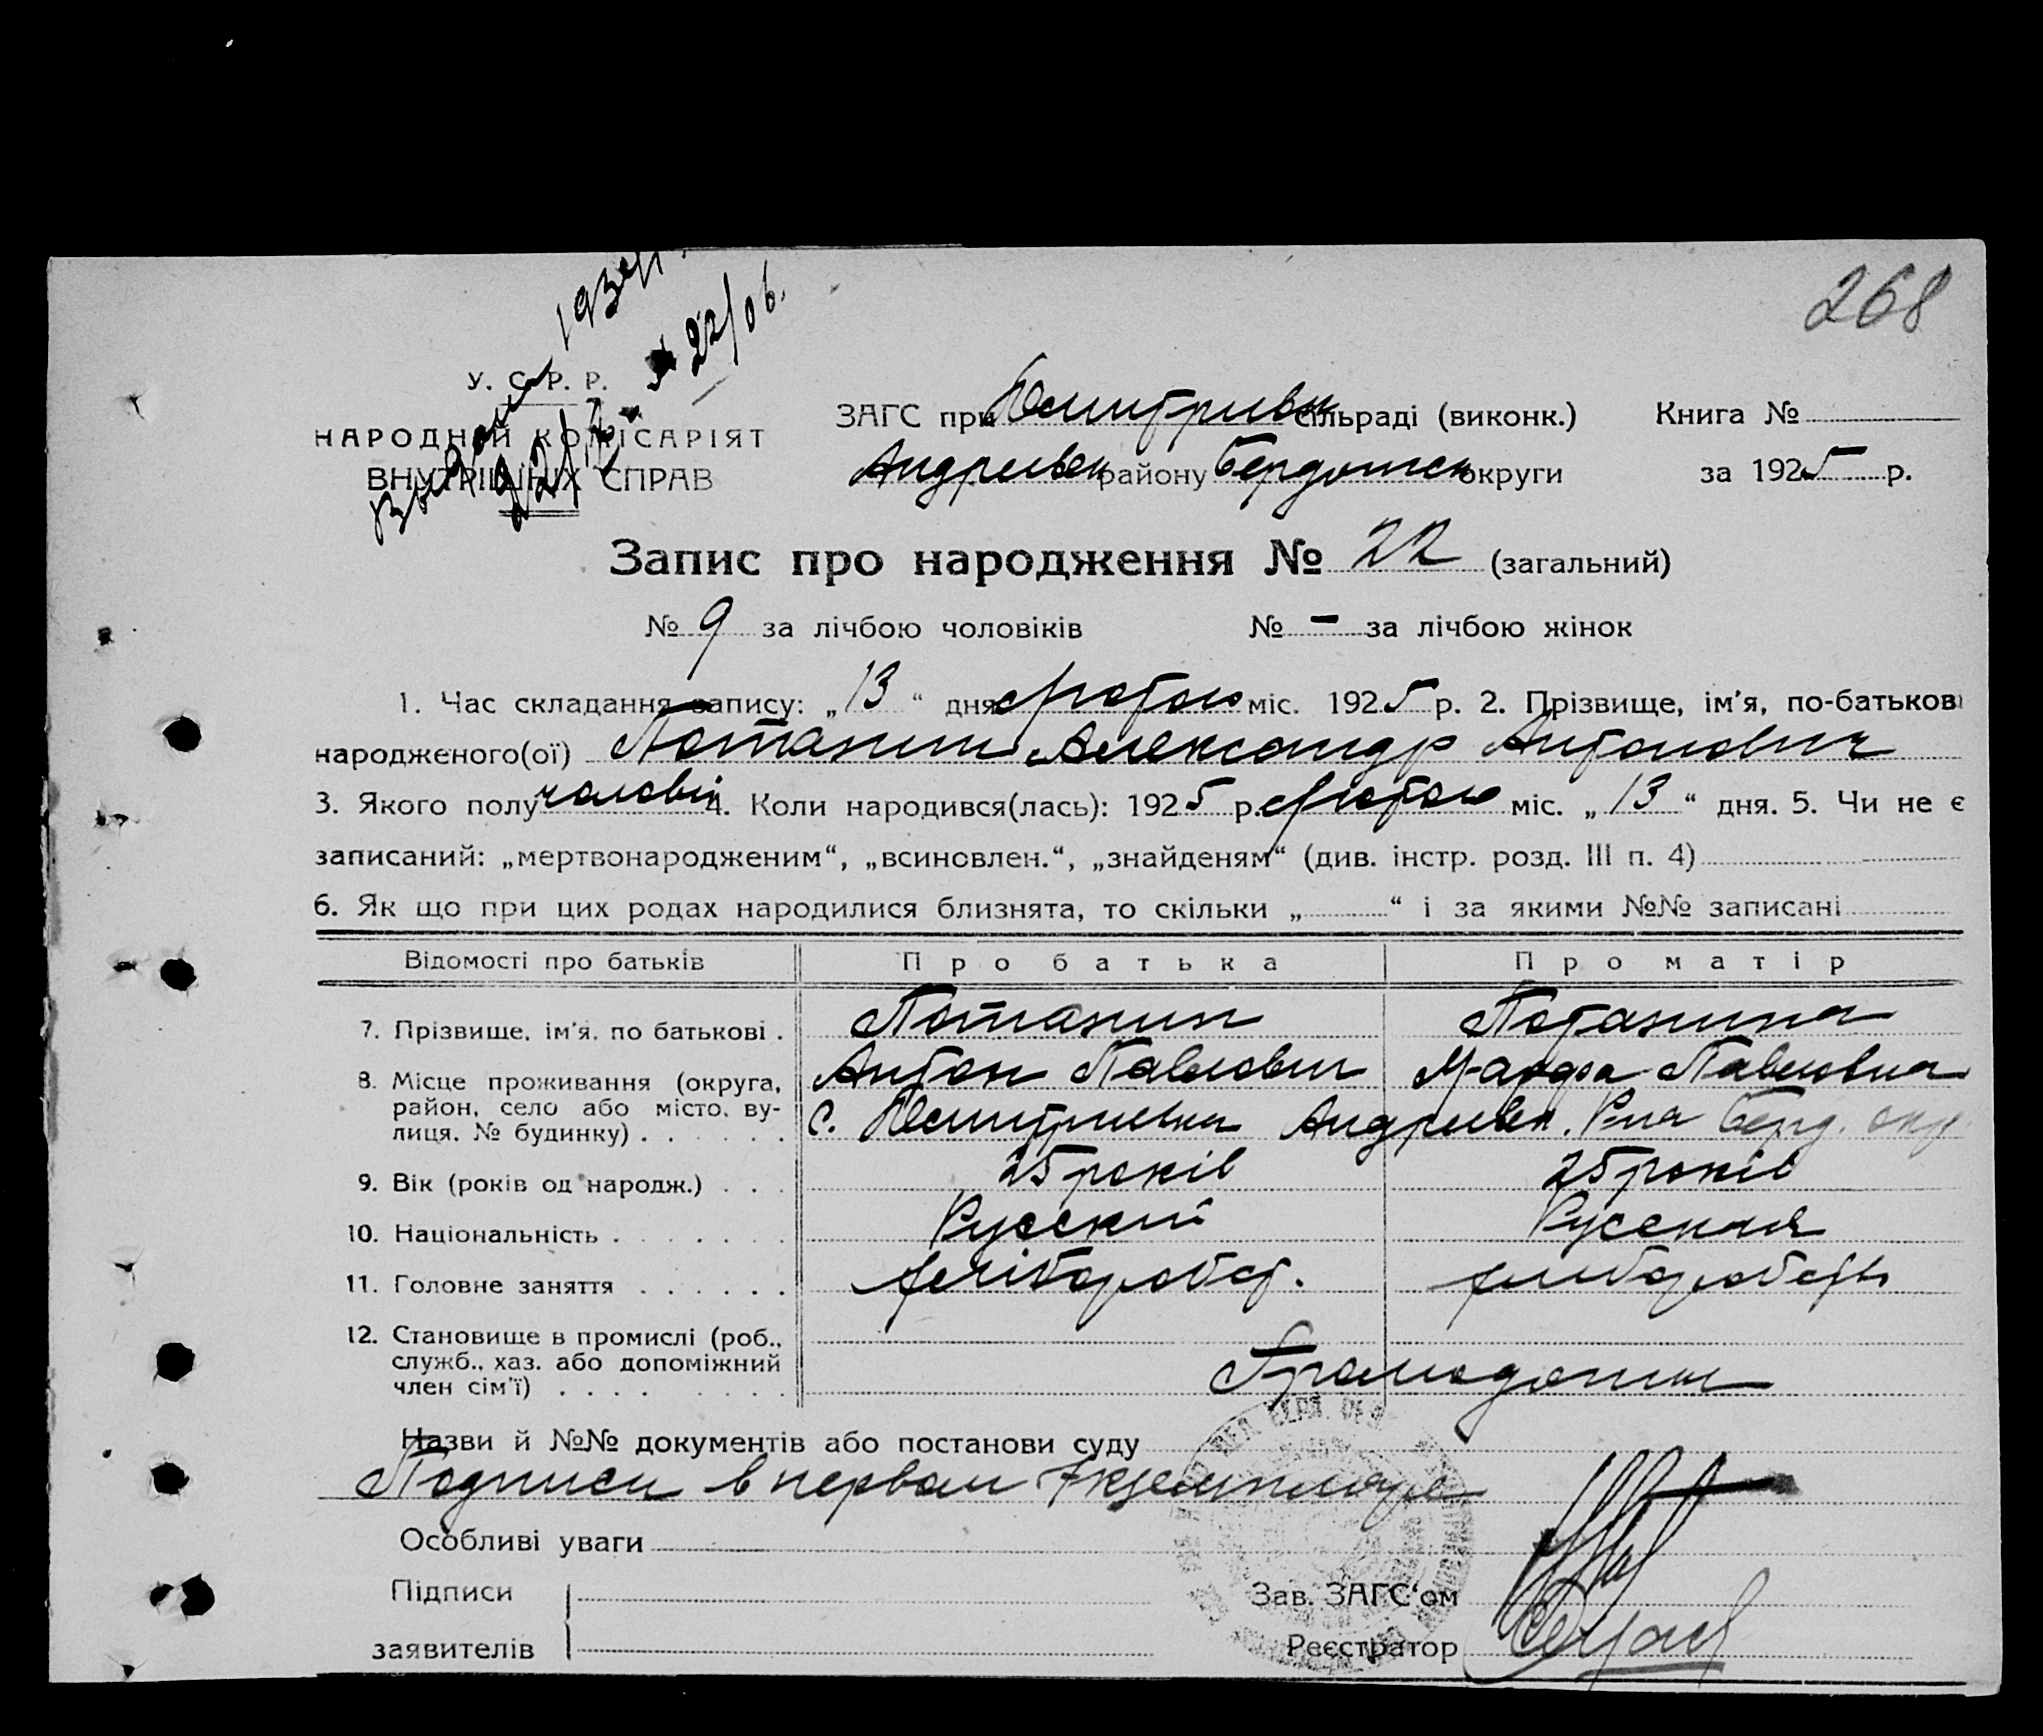 268
У. С. Р. Р.
НАРОДНИЙ КОМІСАРІЯТ
ВНУТРІШНІХ СПРАВ
ЗАГС при Дмитривк сільраді (виконк.) Книга №
Андриевск району Бердянск округи за 1925 р.
Запис про народження № 22 (загальний)
№ 9 за лічбою чоловіків № – за лічбою жінок
1. Час складання запису: „13“ дня лютого міс. 1925 р. 2. Прізвище, ім'я, по-батькові
народженого(ої) Потанин Александр Антонович
3. Якого полу чоловіч 4. Коли народився(лась): 1925 р. лютого міс. „13“ дня. 5. Чи не є
записаний: „мертвонародженим“, „всиновлен.“, „знайденям“ (див. інстр. розд. III п. 4)
6. Як що при цих родах народилися близнята, то скільки „ “ і за якими №№ записані
Відомості про батьків Про батька Про матір
7. Прізвище, ім'я, по батькові . Потанин Потанина
Антон Павлович Марфа Павловна
8. Місце проживання (округа,
район, село або місто, ву-
лиця, № будинку) . . . . . . с. Дмитриевка Андриевк. Р-на Берд. окр
9. Вік (років од народж.) . . . 25 років 25 років
10. Національність . . . . . . . Русский Русская
11. Головне заняття . . . . . . хліборобст. хлиборобст
12. Становище в промислі (роб.,
служб., хаз. або допоміжний
член сім'ї) . . . . . . . . .
Назви й №№ документів або постанови суду
Подписи в первом экземпляре
Особливі уваги
Підписи
заявителів
Зав. ЗАГС'ом
Реєстратор